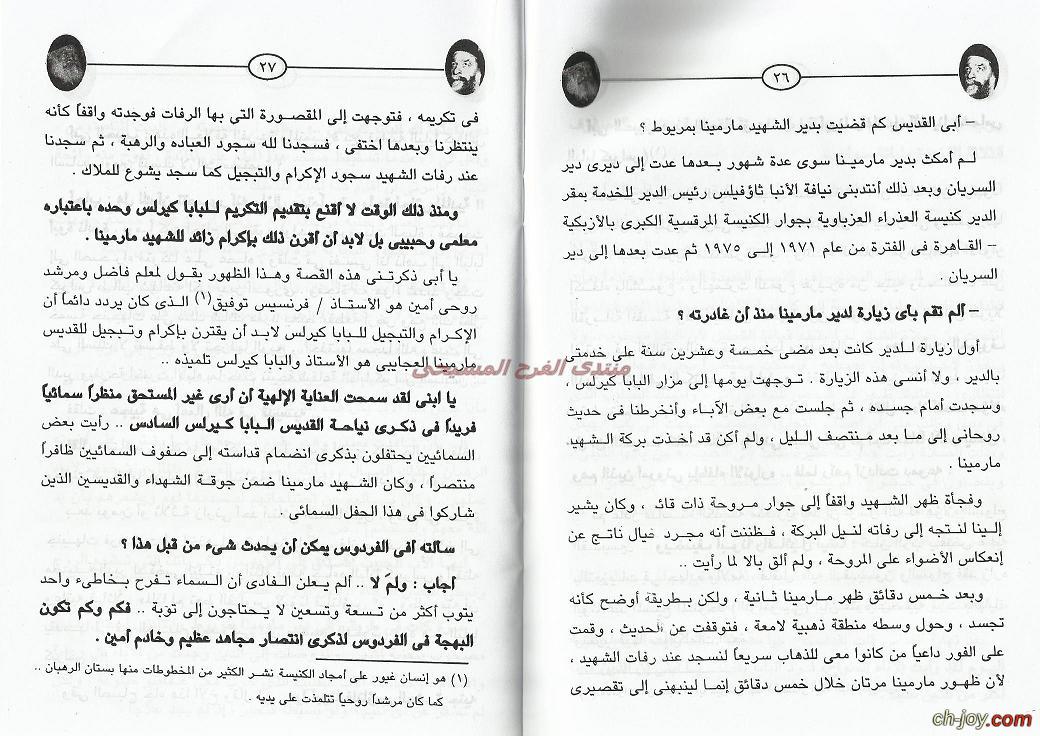 ٢٦
– أبى القديس كم قضيت بدير الشهيد مارمينا بمريوط ؟
لم أمكث بدير مارمينا سوى عدة شهور بعدها عدت إلى ديرى دير
السريان وبعد ذلك أنتدبنى نيافة الأنبا ثاؤفيلس رئيس الدير للخدمة بمقر
الدير كنيسة العذراء العزباوية بجوار الكنيسة المرقسية الكبرى بالأزبكية
– القاهرة فى الفترة من عام ١٩٧١ إلى ١٩٧٥ ثم عدت بعدها إلى دير
السريان .
– ألم تقم بأى زيارة لدير مارمينا منذ أن غادرته ؟
أول زيارة للدير كانت بعد مضى خمسة وعشرين سنة على خدمتى
بالدير ، ولا أنسى هذه الزيارة . توجهت يومها إلى مزار البابا كيرلس ،
وسجدت أمام جسده ، ثم جلست مع بعض الآباء وأنخرطنا فى حديث
روحانى إلى ما بعد منتصف الليل ، ولم أكن قد أخذت بركة الشهيد
مارمينا .
وفجأة ظهر الشهيد واقفاً إلىّ جوار مروحة ذات قائم ، وكان يشير
إلينا لنتجه إلى رفاته لنيل البركة ، فظننت أنه مجرد خيال ناتج عن
إنعكاس الأضواء على المروحة ، ولم ألق بالا لما رأيت ..
وبعد خمس دقائق ظهر مارمينا ثانية ، ولكن بطريقة أوضح كأنه
تجسد ، وحول وسطه منطقة ذهبية لامعة ، فتوقفت عن الحديث ، وقمت
على الفور داعياً من كانوا معى للذهاب سريعاً لنسجد عند رفات الشهيد ،
لأن ظهور مارمينا مرتان خلال خمس دقائق إنما لينبهنى إلى تقصيرى
٢٧
فى تكريمه ، فتوجهت إلى المقصورة التى بها الرفات فوجدته واقفاً كأنه
ينتظرنا وبعدها اختفى ، فسجدنا لله سجود العباده والرهبة ، ثم سجدنا
عند رفات الشهيد سجود الإكرام والتبجيل كما سجد يشوع للملاك .
ومنذ ذلك الوقت لا أقنع بتقديم التكريم للبابا كيرلس وحده باعتباره
معلمى وحبيبى بل لابد أن أقرن ذلك بإكرام زائد للشهيد مارمينا .
يا أبى ذكرتنى هذه القصة وهذا الظهور بقول لمعلم فاضل ومرشد
روحى أمين هو الأستاذ / فرنسيس توفيق(١) الذى كان يردد دائماً أن
الإكرام والتبجيل للبابا كيرلس لابد أن يقترن بإكرام وتبجيل للقديس
مارمينا العجايبى هو الأستاذ والبابا كيرلس تلميذه ..
يا ابنى لقد سمحت العناية الإلهية أن أرى غير المستحق منظراً سمائياً
فريداً فى ذكرى نياحة القديس البابا كيرلس السادس .. رأيت بعض
السمائيين يحتفلون بذكرى انضمام قداسته إلى صفوف السمائيين ظافراً
منتصراً ، وكان الشهيد مارمينا ضمن جوقة الشهداء والقديسين الذين
شاركوا فى هذا الحفل السمائى .
سألته أفى الفردوس يمكن أن يحدث شىء من قبل هذا ؟
أجاب : ولمَ لا .. ألم يعلن الفادى أن السماء تفرح بخاطىء واحد
يتوب أكثر من تسعة وتسعين لا يحتاجون إلى توبة .. فكم وكم تكون
البهجة فى الفردوس لذكرى انتصار مجاهد عظيم وخادم أمين .
(١) هو إنسان غيور على أمجاد الكنيسة نشر الكثير من المخطوطات منها بستان الرهبان ..
كما كان مرشداً روحياً تتلمذت على يديه .
منتدى الفرح المسيحى
ch-joy.com